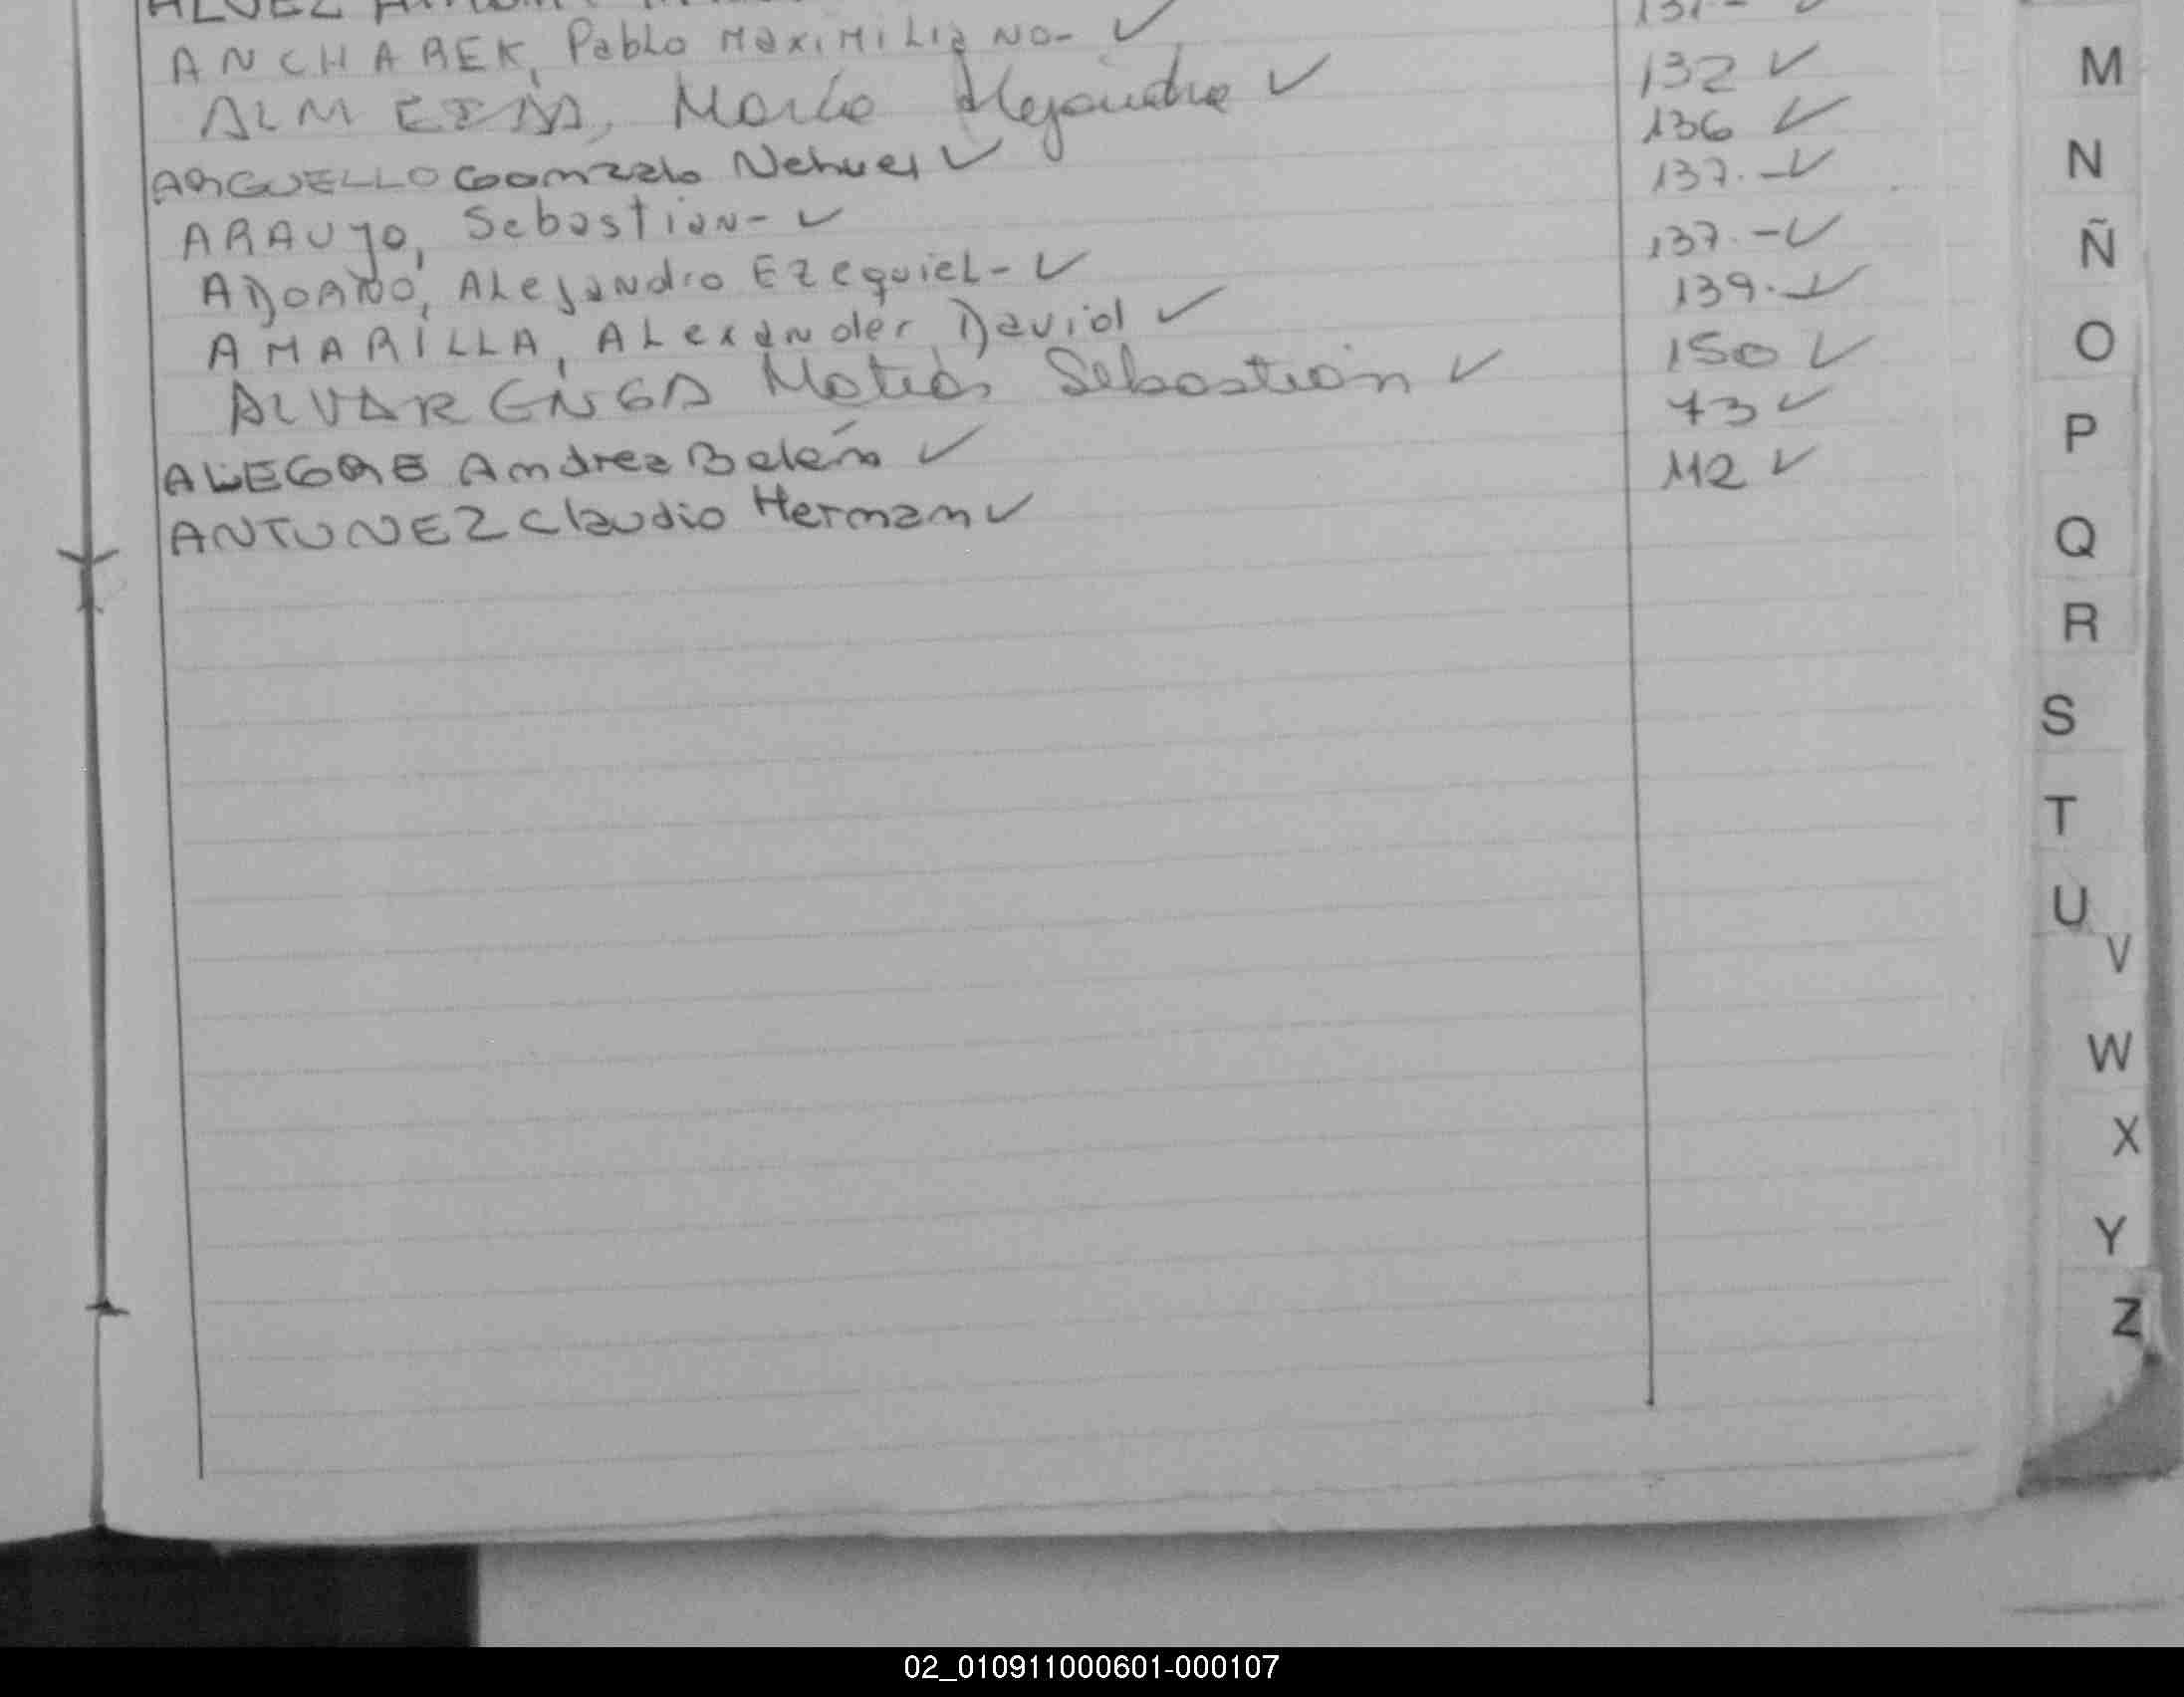 ALVEZ
ANCHAREK, Pablo Maximiliano- ✓ 131- ✓
ALMEIDA, María Alejandra ✓ 132 ✓
ARGUELLO Gonzalo Nehuel ✓ 136 ✓
ARAUJO, Sebastian- ✓ 137.- ✓
ADOANO, Alejandro Ezequiel- ✓ 137.- ✓
AMARILLA, Alexander David ✓ 139.- ✓
ALVARENGA Matías Sebastián ✓ 150 ✓
ALEGRE Andrea Belén ✓ 73 ✓
ANTUNEZ Claudio Hernan ✓ 112 ✓
M
N
Ñ
O
P
Q
R
S
T
U
V
W
X
Y
Z
02_010911000601-000107